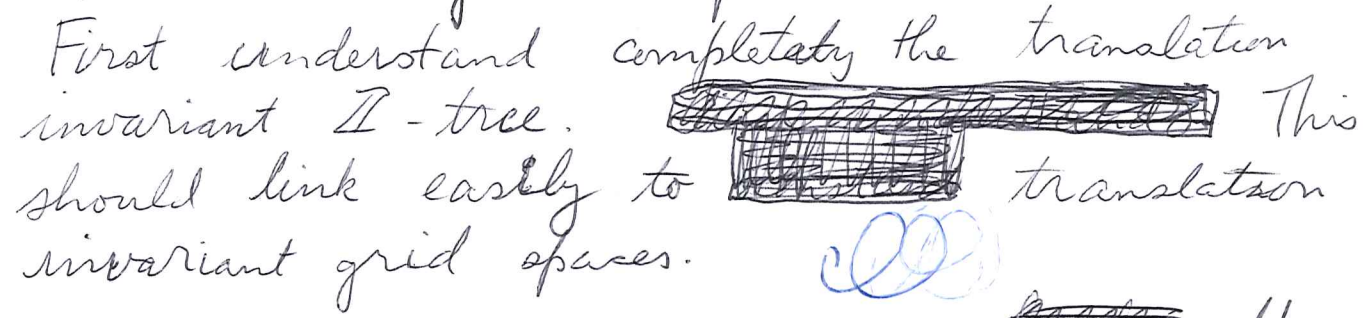 First understand completely the translation
invariant ℤ-tree. This
should link easily to translation
invariant grid spaces.